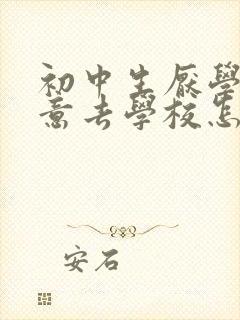 初中生厭學
意去學校怎
安石